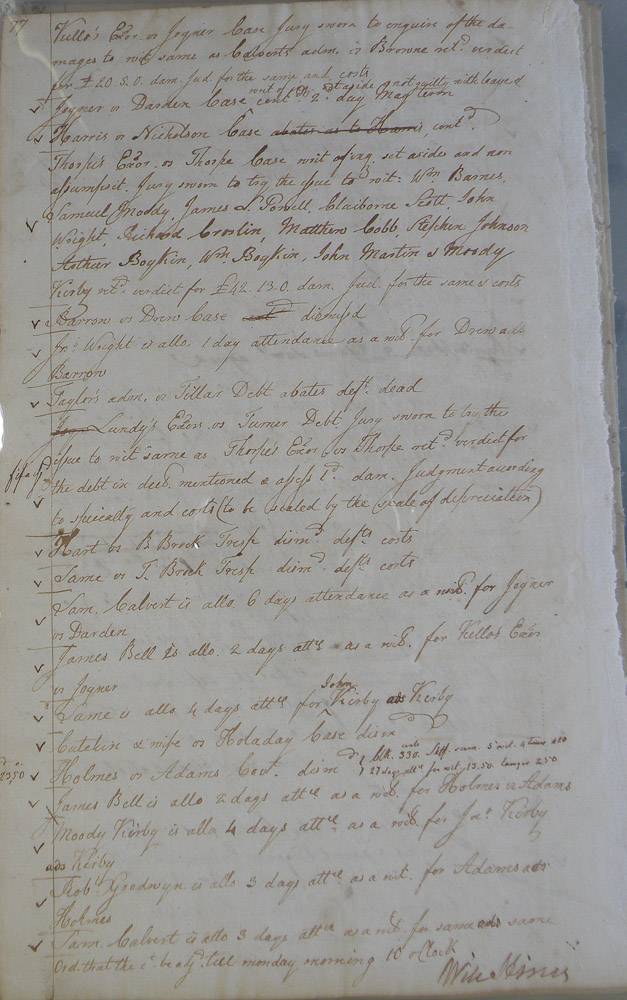 77
Kello's Exor vs Joyner Case Jury sworn to enquire of the da-
mages to wit same as Calverts admr. vs Browne retd. verdict
for £20.5.0. dam. Jud. for the same and costs
Joyner vs Darden Case writ of set aside & not guilty with leave & contd. 2nd. day May term
Harris vs Nicholson Case abates as to Harris, contd.
Thorpe's Exor. vs Thorpe Case writ of enq. set aside and non
assumpsit. Jury sworn to try the issue to wit: Wm Barnes,
Samuel Moody, James S. Powell, Claiborne Scott, John
Wright, Richard Croslin, Matthew Cobb, Stephen Johnson
Arthur Boykin, Wm. Boykin, John Martin & Moody
Kirby retd. verdict for £42.13.0. dam. Jud. for the same & costs
Barrow vs Drew Case contd dismissd
Jno. Wright is allo. 1 day attendance as a wit. for Drew ads.
Barrow
Taylor's admr. vs Tillar Debt abates deft. dead
Lundy's Exors vs Turner Debt, Jury sworn to try the
issue to wit same as Thorpe's Exor vs Thorpe retd. verdict for
the debt in decl. mentioned & assess 1d. dam. Judgment according
to specialty and costs (to be scaled by the scale of depreciation)
Hart vs B Brock Tresp dismd. defts costs
Same vs T. Brock Tresp dismd. defts costs
Sam. Calvert is allo. 6 days attendance as a wit. for Joyner
vs Darden
James Bell is allo. 2 days attce as a wit. for Kello's Exor
vs Joyner
Same is allo 4 days attce for John Kirby ads Kirby
Cutchin & wife vs Holaday Case dismd
23,50 Holmes vs Adams Covt. dismd costs
James Bell is allo 2 days attce as a wit for Holmes vs Adams
Moody Kirby is allo 4 days attce. as a wit. for Jno. Kirby
ads Kirby
Robt. Goodwyn is allo 3 days attce. as a wit. for Adams ads
Holmes
Sam. Calvert is allo 3 days attce as a wit. for same ads same
Ord. that the ct. be adjd. till monday morning 10 oClock
Will Hines